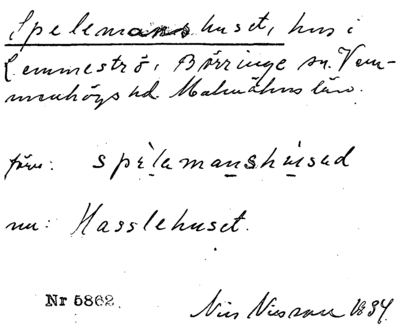 Spelemanshuset, hus i
Lemmeströ, Börringe sn. Vem-
menhögs hd Malmöhus län.
förr: spelamanshúsed
nu: Hasslehuset.
Nr 5862. Nils 1934.